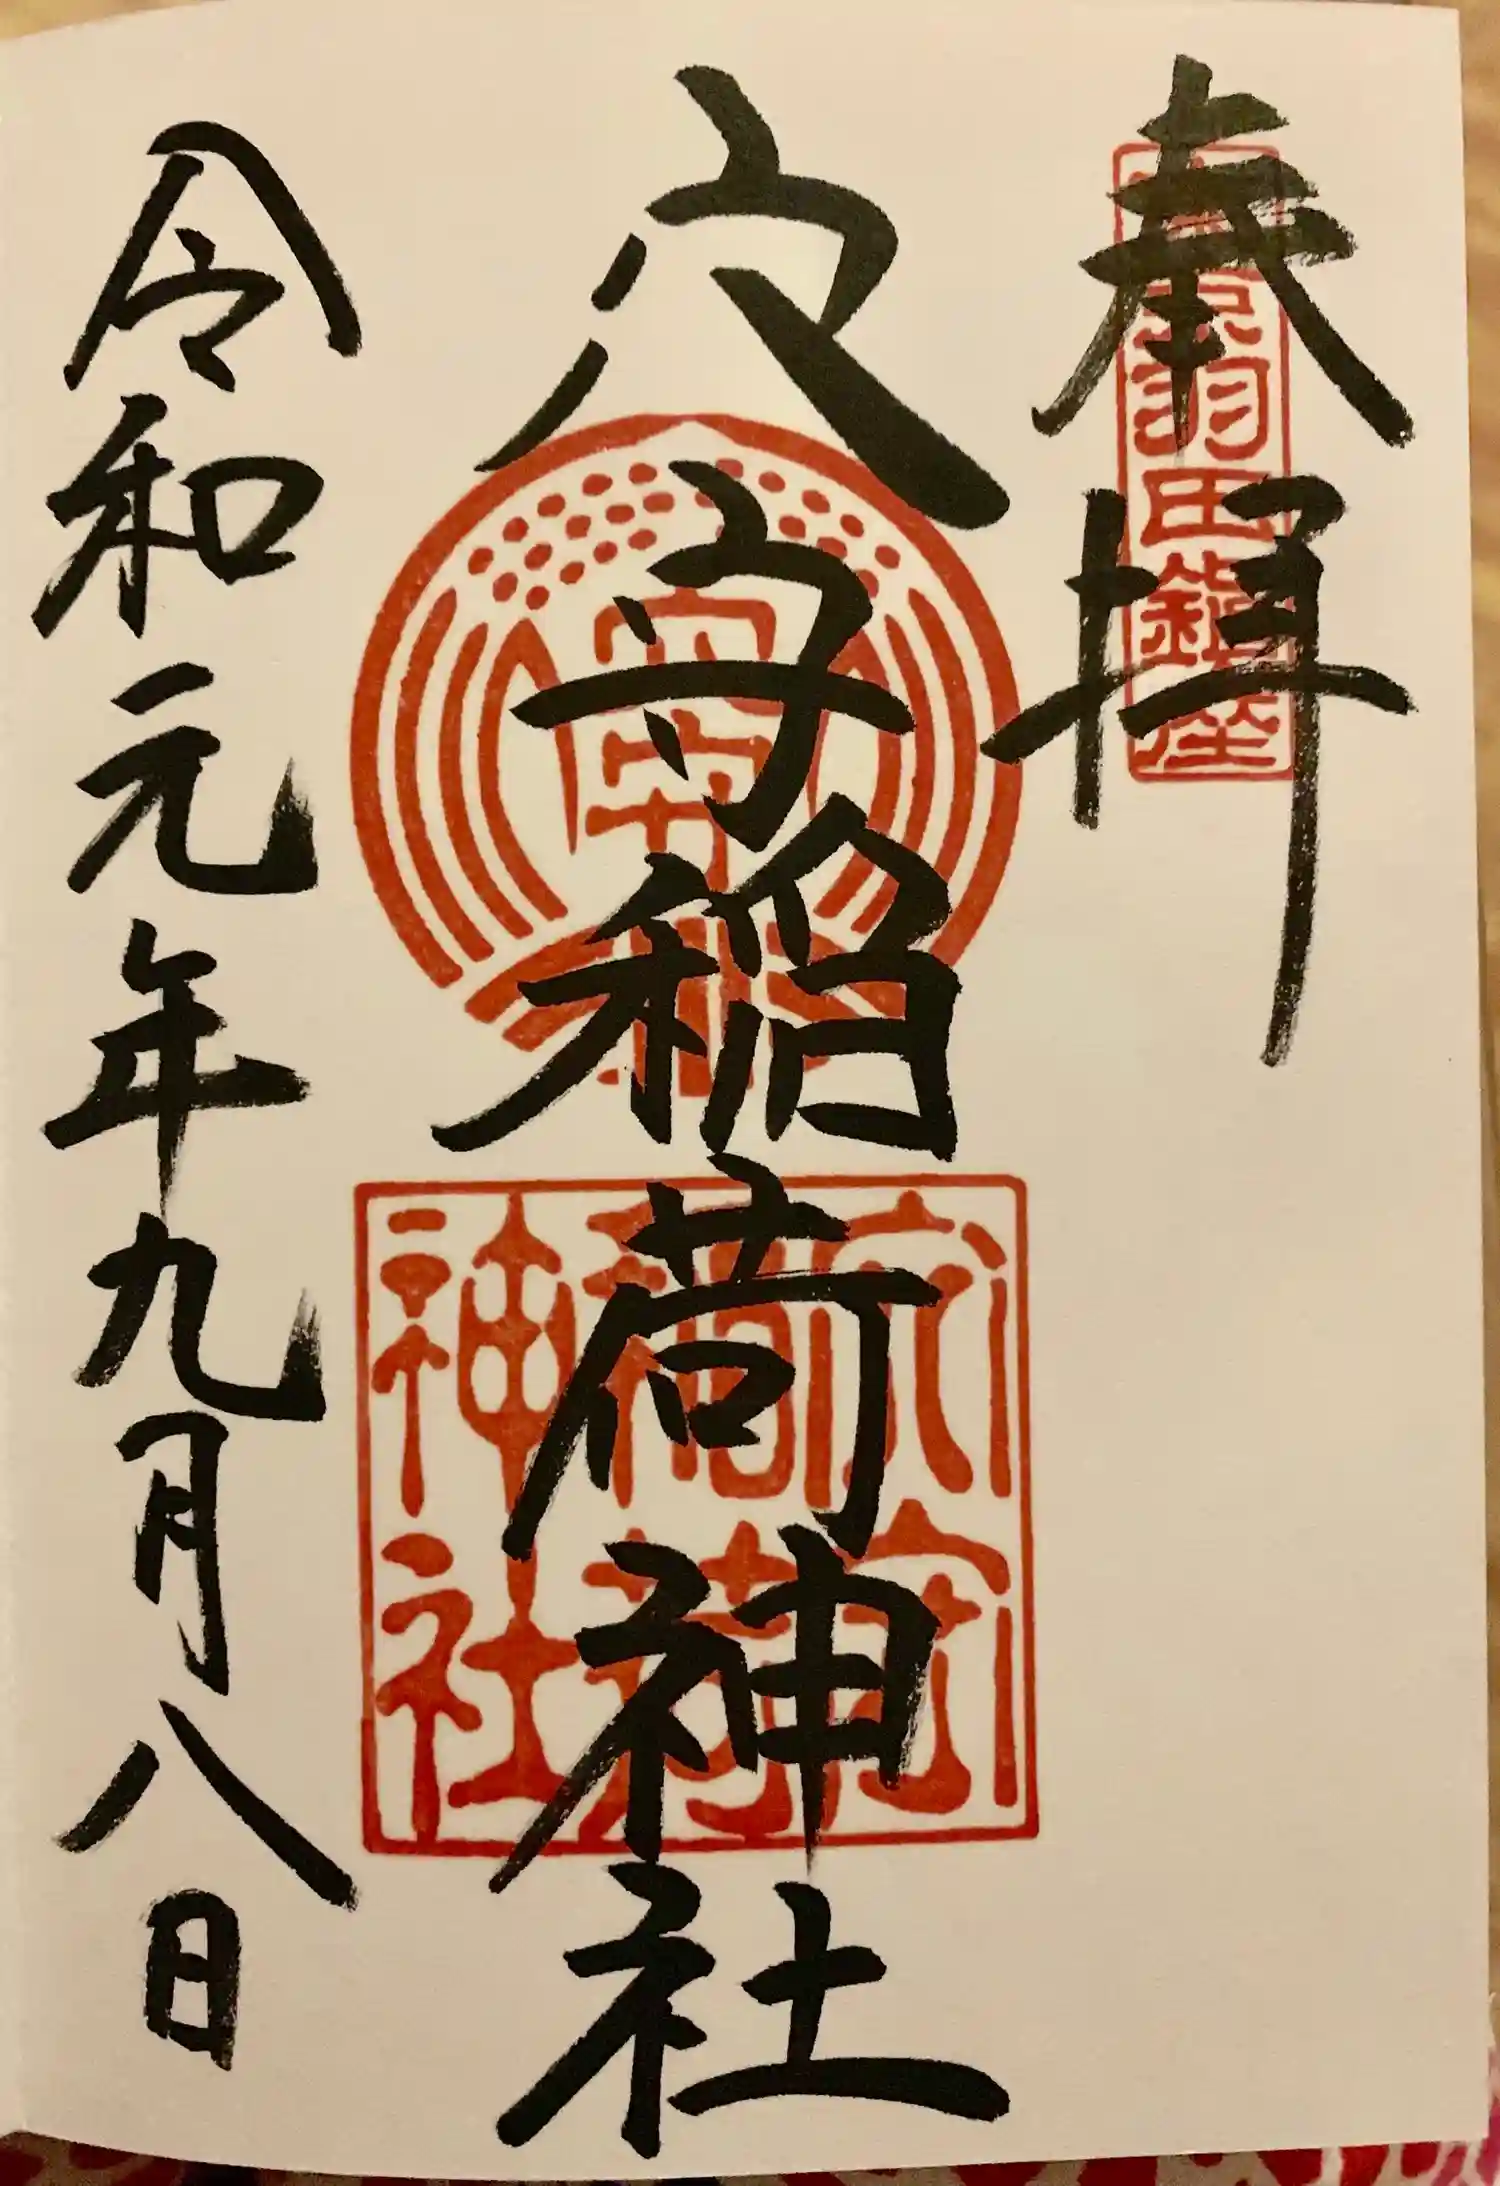 奉拝
東京羽田鎮座
穴守稲荷神社
穴守
穴守稲荷神社
令和元年九月八日